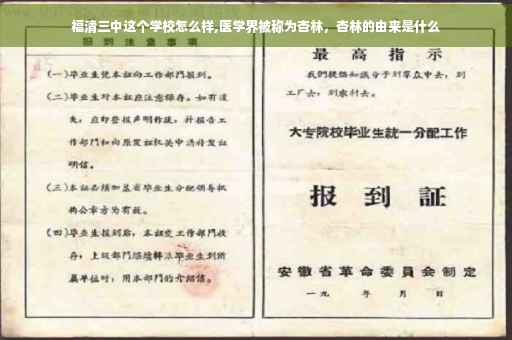 福清三中这个学校怎么样,医学界被称为杏林，杏林的由来是什么
报到注意事项
(一)毕业生凭本证向工作部门报到。
(二)毕业生对本证应注意保存。如有遗
失，应即登报声明作废，并报告工
作部门和向原发证机关申请补发证
明信。
(三)本证必须加盖省毕业生分配领导机
构公章方为有效。
(四)毕业生报到后，本证交工作部门收
存；上级部门
毕业生到所
属单位时，用本部门的介绍信。
最高指示
我们提倡知识分子到群众中去，到
工厂去，到农村去。
大专院校毕业生统一分配工作
报到証
安徽省革命委員会制定
一九 年 月 日